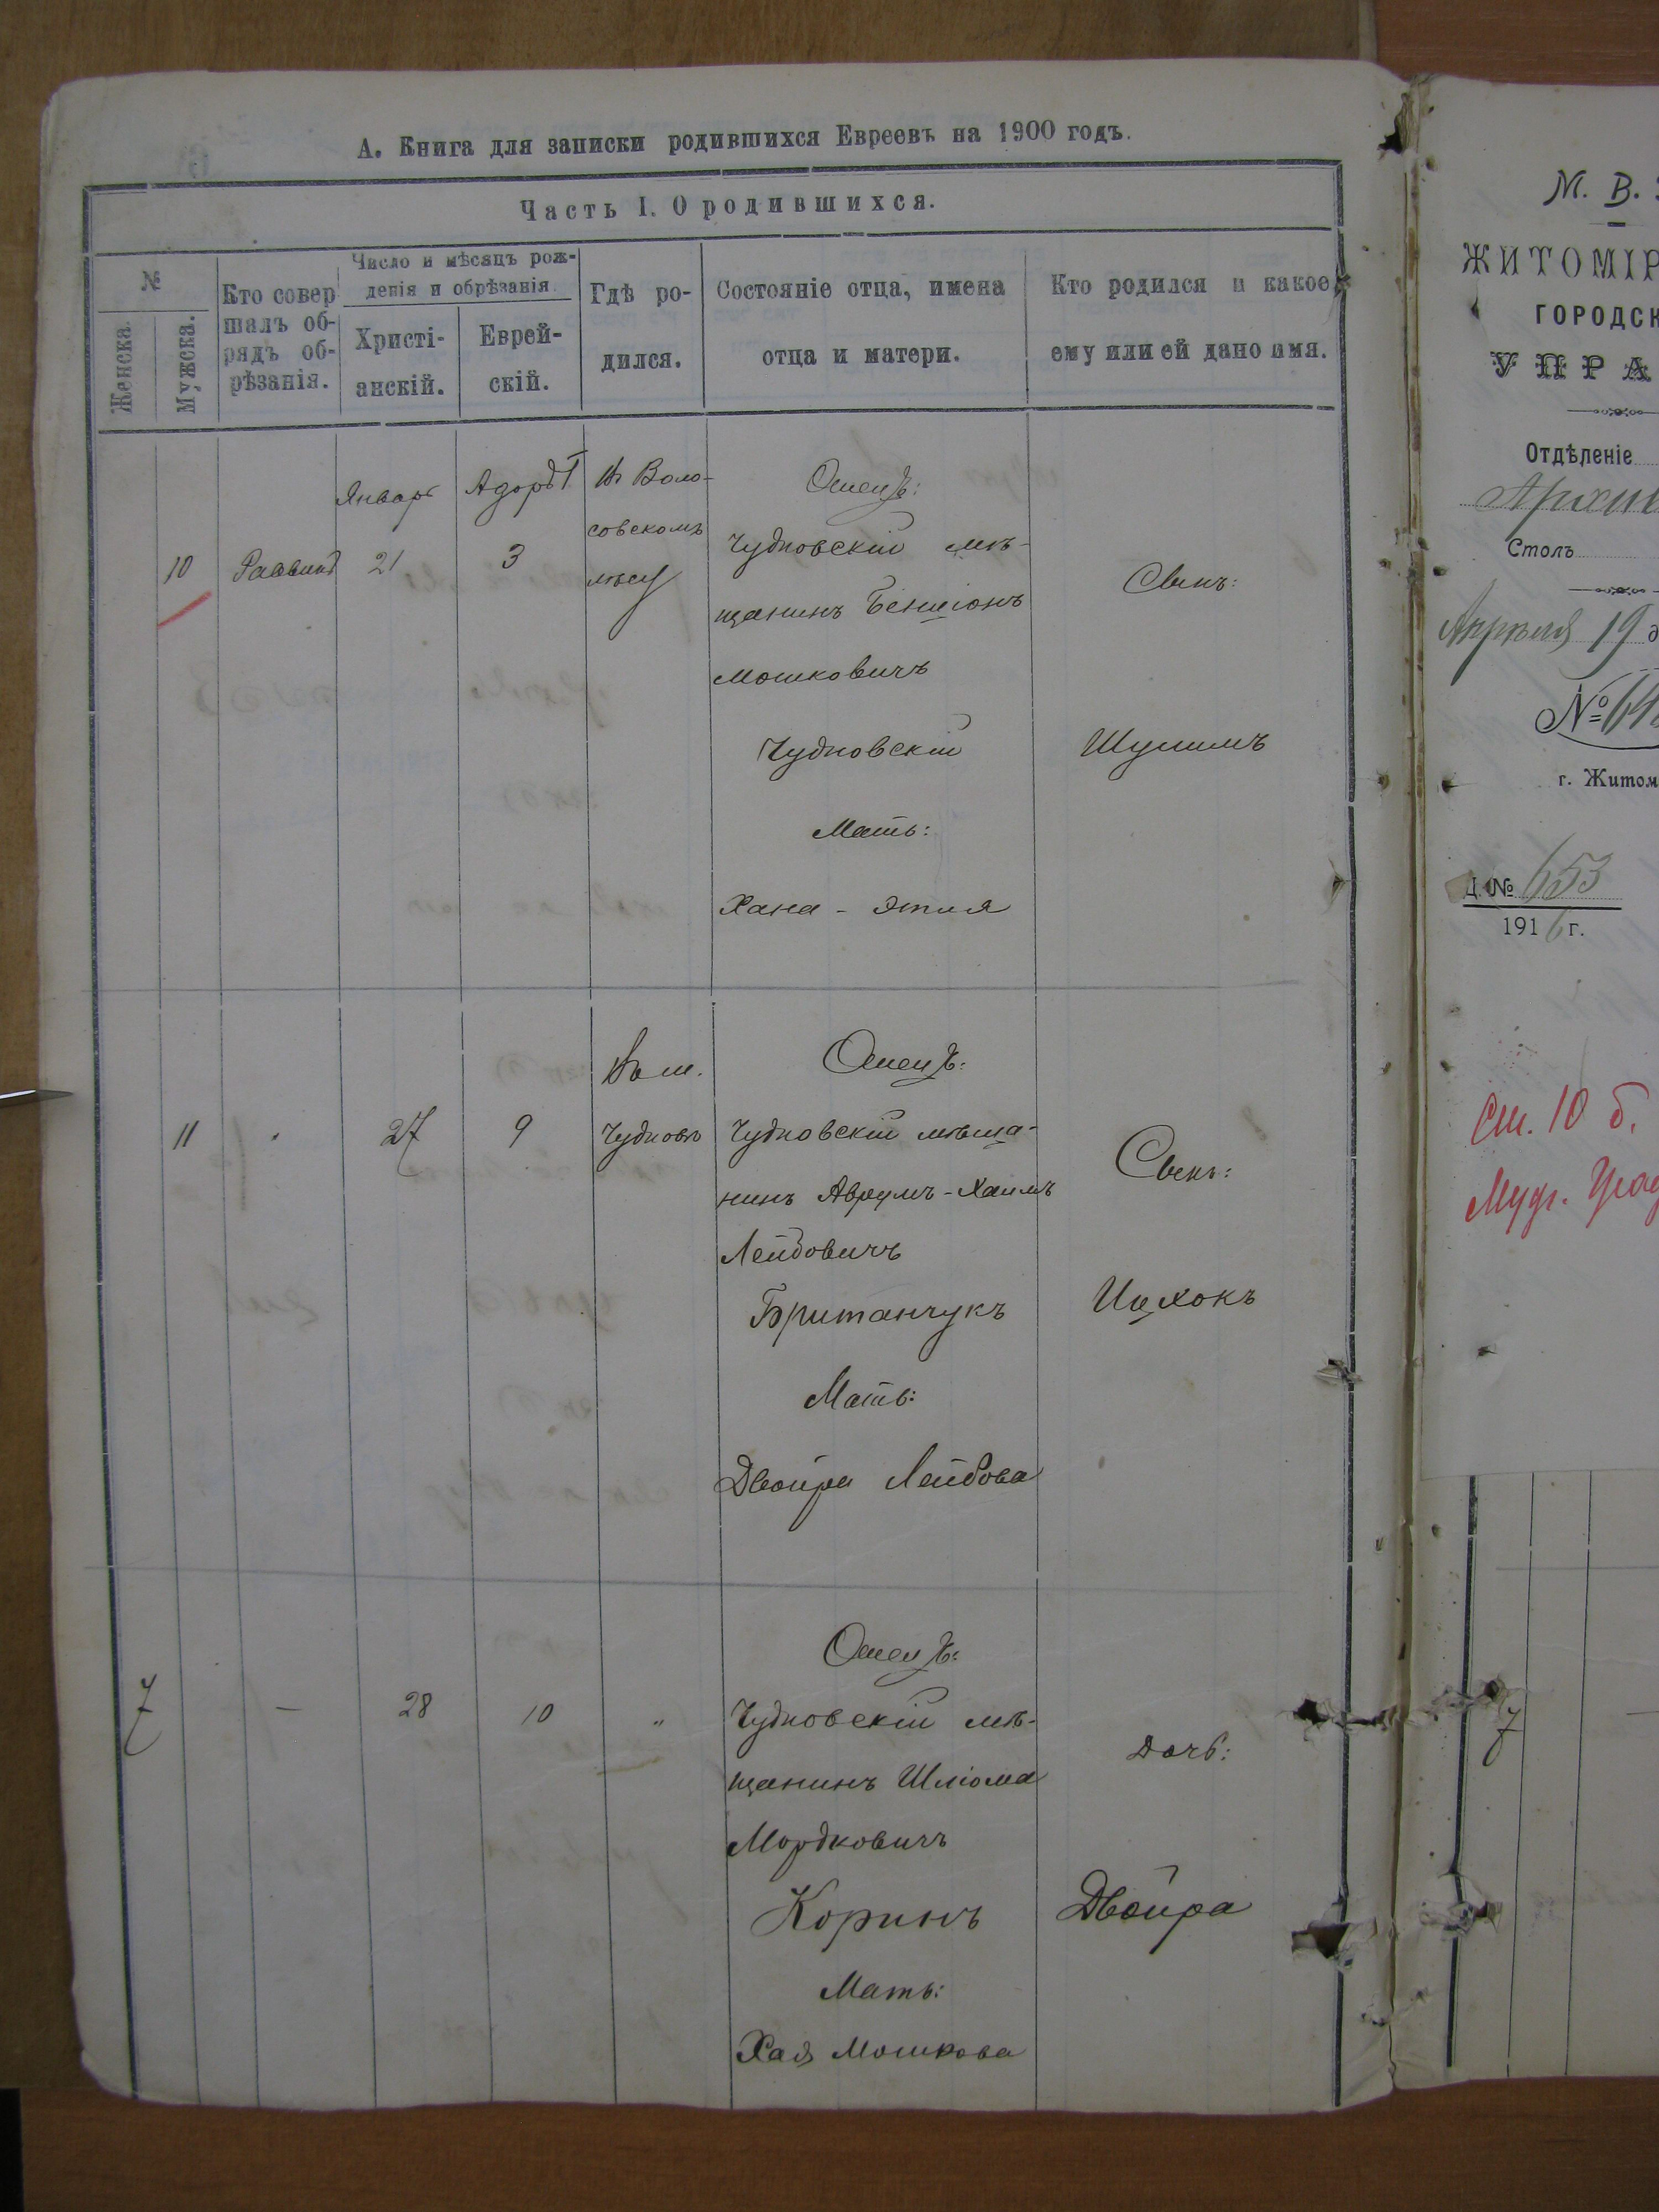 А. Книга для записки родившихся Евреевъ на 1900 годъ.
Часть I. О родившихся.
№
Женска.
Мужска.
Кто совер
шалъ об-
рядъ об-
рѣзанія.
Число и мѣсяцъ рож-
денія и обрѣзанія
Христі-
анскій.
Еврей-
скій.
Гдѣ ро-
дился.
Состояніе отца, имена
отца и матери.
Кто родился и какое
ему или ей дано имя.
10
Раввинъ
Январь
21
Адоръ I
3
Въ Воло-
совскомъ
лѣсу
Отецъ:
Чудновскій мѣ-
щанинъ Бенціонъ
Мошковичъ
Чудновскій
Мать:
Хана - Этля
Сынъ:
11
27
9
Въ м.
Чудновѣ
Отецъ:
Чудновскій мѣща-
нинъ Аврумъ-Хаимъ
Лейбовичъ
Британчукъ
Мать:
Двойра Лейбова
Сынъ:
Ицхокъ
7
—
28
10
"
Отецъ:
Чудновскій мѣ-
щанинъ Шліома
Мордковичъ
Коринъ
Мать:
Хая Мошкова
Дочь:
Двойра
М. В.
ЖИТОМІР
ГОРОДСК
УПРА
Отдѣленіе
Столъ
Апрѣля 19 д
№ 64
г. Житом
Д. № 653
1916 г.
Ст. 10 б.
7